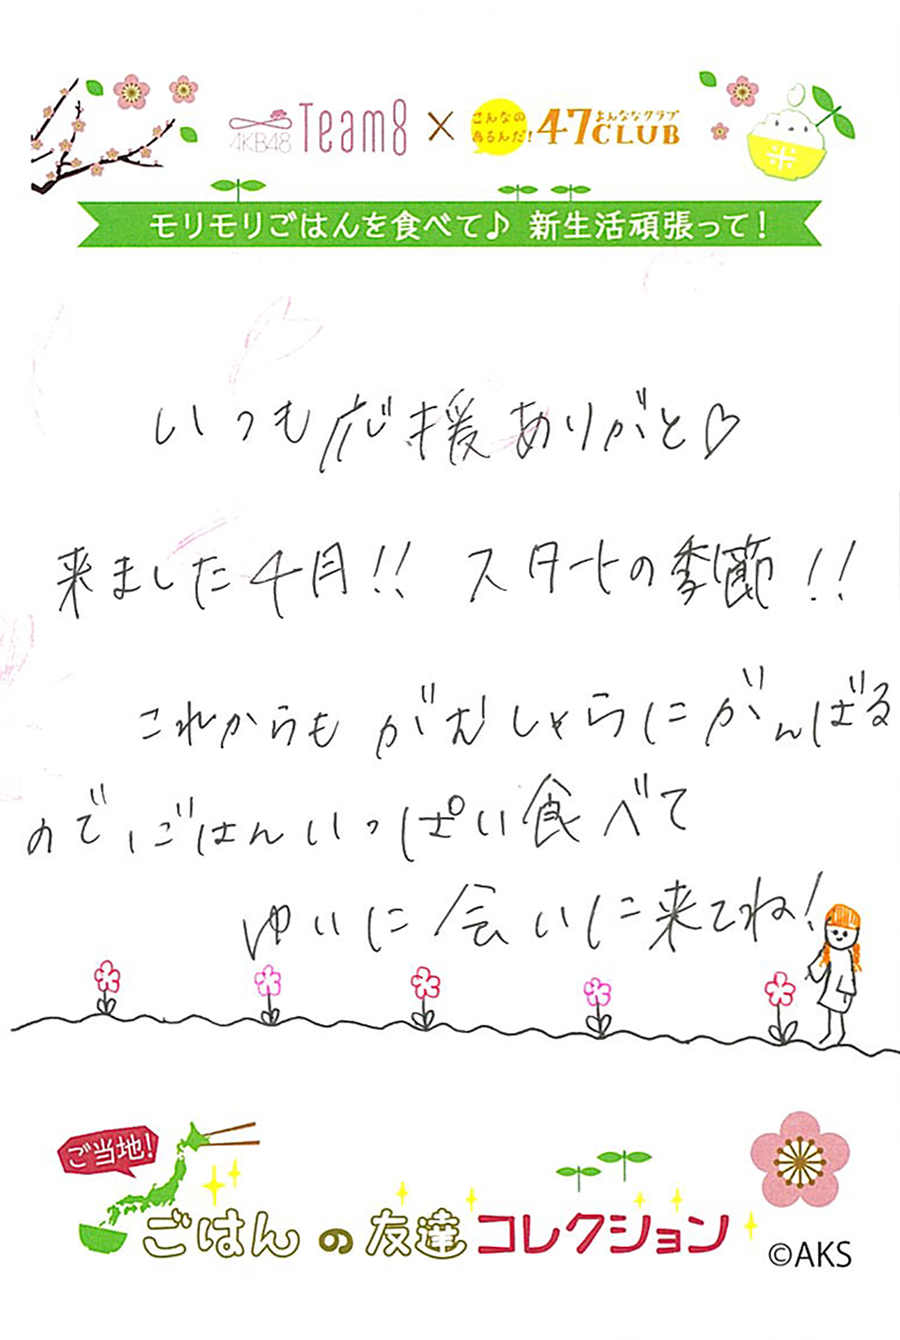 AKB48 Team8 × こんなのあるんだ! 47CLUB よんななクラブ
米
モリモリごはんを食べて♪ 新生活頑張って!
いつも応援ありがと♡
来ました4月!! スタートの季節!!
これからも がむしゃらに がんばる
のでごはんいっぱい食べて
ゆいに会いに来てね!
ご当地!
ごはんの友達コレクション
©AKS